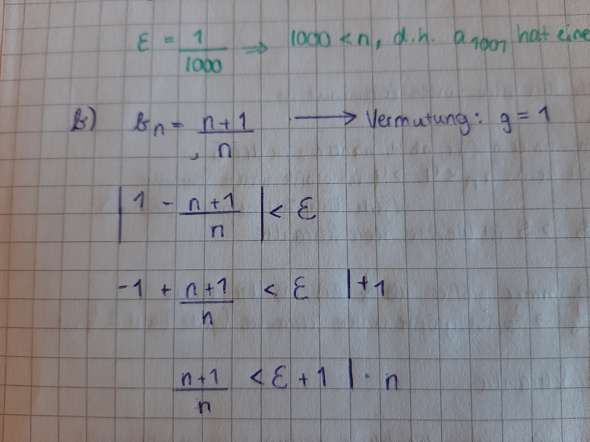 ε = 1/1000 ⇒ 1000 < n, d.h. a₁₀₀₁ hat eine
b) bₙ = n+1/n → Vermutung: g = 1
|1 - n+1/n| < ε
-1 + n+1/n < ε |+1
n+1/n < ε + 1 |· n